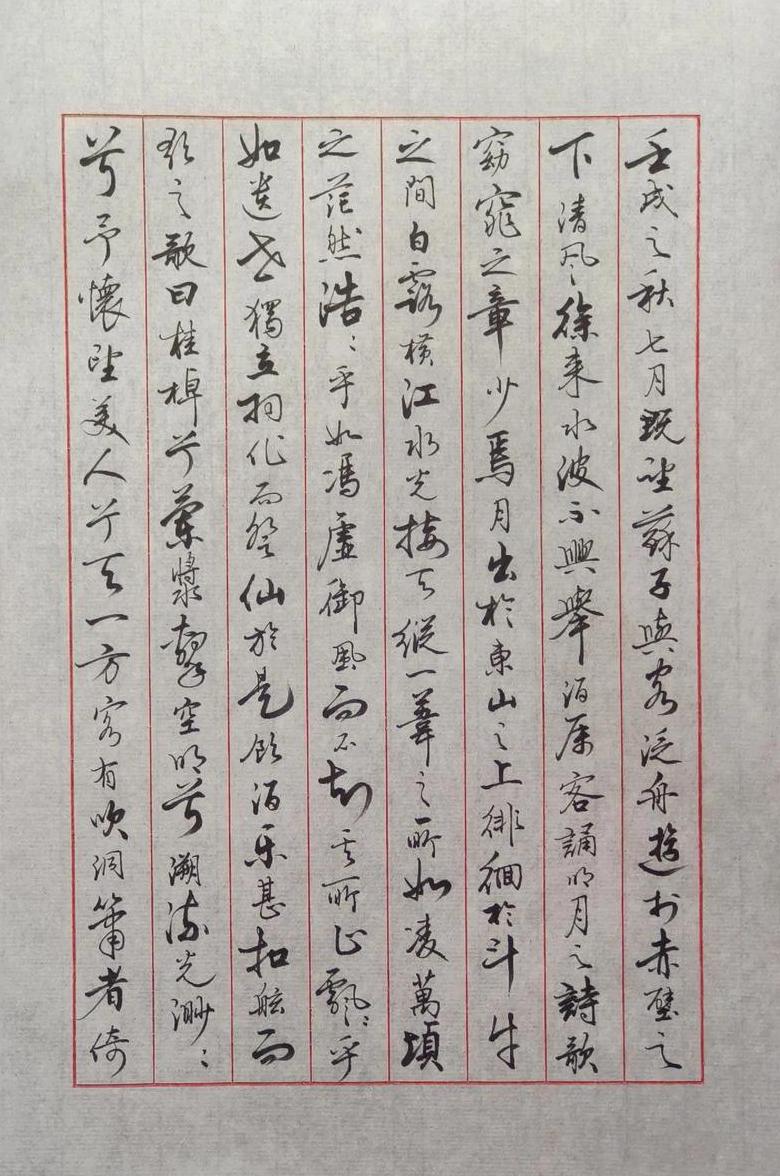 壬戌之秋七月既望蘇子與客泛舟遊於赤壁之
下清風徐来水波不興舉酒屬客誦明月之詩歌
窈窕之章少焉月出於東山之上徘徊於斗牛
之間白露橫江水光接天縱一葦之所如凌萬頃
之茫然浩〻乎如馮虛御風而不知其所止飄〻乎
如遺世獨立羽化而登仙於是飲酒乐甚扣舷而
歌之歌曰桂棹兮蘭槳擊空明兮溯流光渺〻
兮予懷望美人兮天一方客有吹洞簫者倚